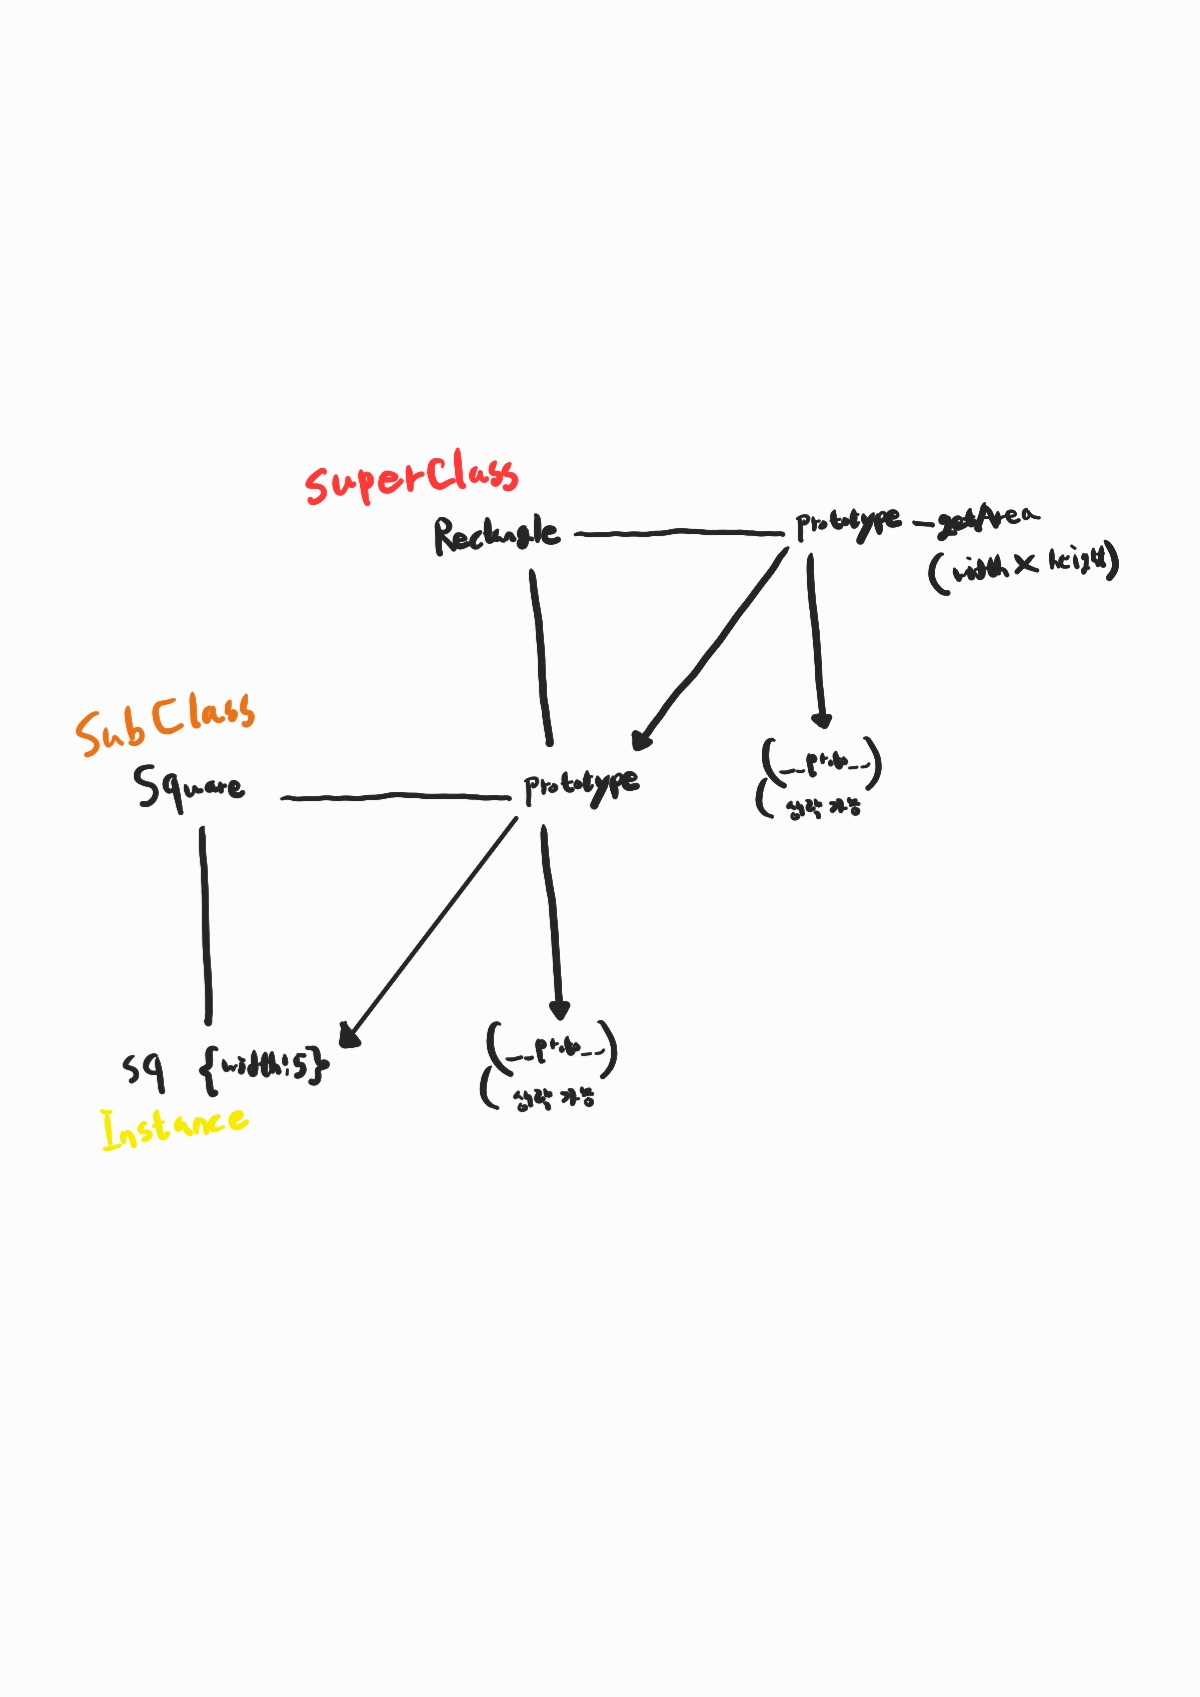 SuperClass
Rectangle prototype - getArea
(width X height)
SubClass
Square prototype
(__proto__)
(생략 가능
sq {width:5}
Instance
(__proto__)
(생략 가능